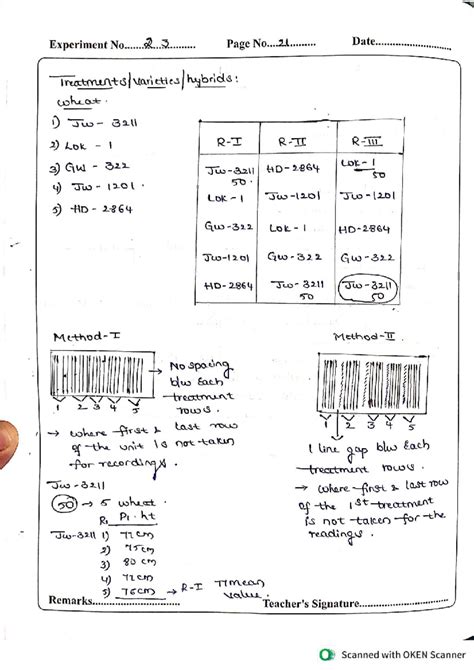 Experiment No. 23 Page No. 21 Date
Treatments/varieties/hybrids:
wheat.
1) JW-3211
2) LOK-1
3) GW-322
4) JW-1201.
5) HD-2864
R-I R-II R-III
JW-3211 HD-2864 LOK-1
50 50
LOK-1 JW-1201 JW-1201
GW-322 LOK-1 HD-2864
JW-1201 GW-322 GW-322
HD-2864 JW-3211 JW-3211
50 50
Method-I
No spacing
b/w Each
treatment
rows.
1 2 3 4 5
→ where first & last row
of the unit is not taken
for recordings.
JW-3211
50 → 5 wheat.
R1 Pl. ht
JW-3211 1) 77cm
2) 75cm
3) 80cm
4) 72cm
5) 76cm → R-I 77mean
value.
Method-II.
1 2 3 4 5
1 line gap b/w Each
treatment rows.
→ where first & last row
of the 1st treatment
is not taken for the
readings.
Remarks Teacher's Signature
Scanned with OKEN Scanner